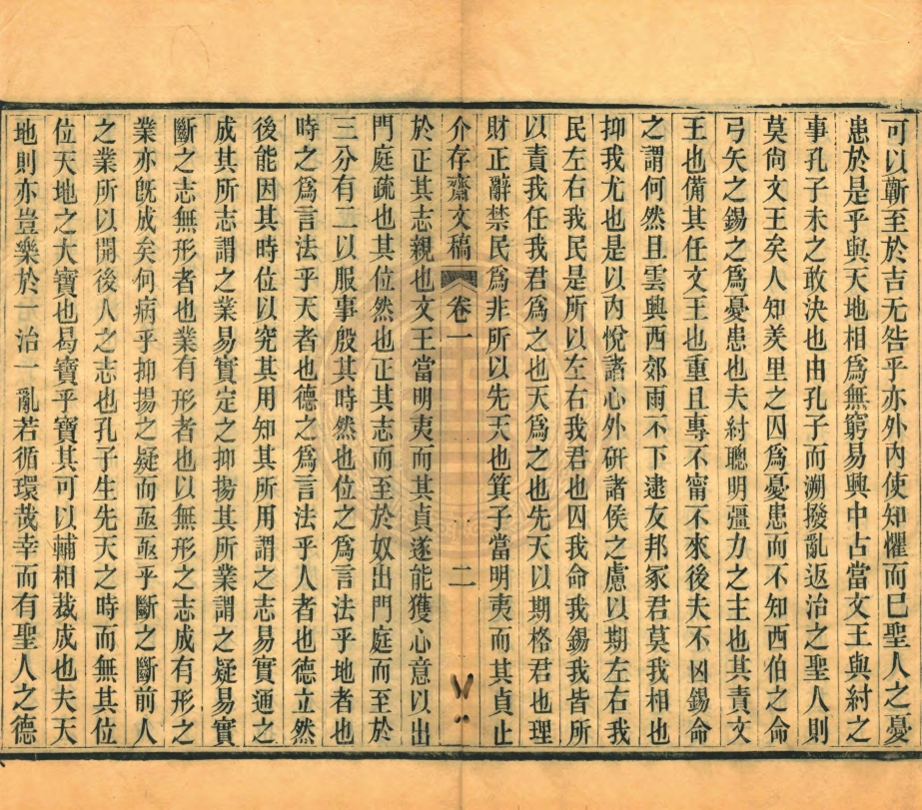 可以蘄至於吉无咎乎亦外內使知懼而已聖人之憂
患於是乎與天地相爲無窮易興中古當文王與紂之
事孔子未之敢決也由孔子而溯撥亂返治之聖人則
莫尙文王矣人知羑里之囚爲憂患而不知西伯之命
弓矢之錫之爲憂患也夫紂聰明彊力之主也其責文
王也備其任文王也重且專不甯不來後夫不凶錫命
之謂何然且雲興西郊雨不下逮友邦冢君莫我相也
抑我尤也是以內悅諸心外研諸侯之慮以期左右我
民左右我民是所以左右我君也囚我命我錫我皆所
以責我任我君爲之也天爲之也先天以期格君也理
財正辭禁民爲非所以先天也箕子當明夷而其貞止
介存齋文稿 卷一 二
於正其志親也文王當明夷而其貞遂能獲心意以出
門庭疏也其位然也正其志而至於奴出門庭而至於
三分有二以服事殷其時然也位之爲言法乎地者也
時之爲言法乎天者也德之爲言法乎人者也德立然
後能因其時位以究其用知其所用謂之志易實通之
成其所志謂之業易實定之抑揚其所業謂之疑易實
斷之志無形者也業有形者也以無形之志成有形之
業亦旣成矣何病乎抑揚之疑而亟亟乎斷之斷前人
之業所以開後人之志也孔子生先天之時而無其位
位天地之大寶也曷寶乎寶其可以輔相裁成也夫天
地則亦豈樂於一治一亂若循環哉幸而有聖人之德